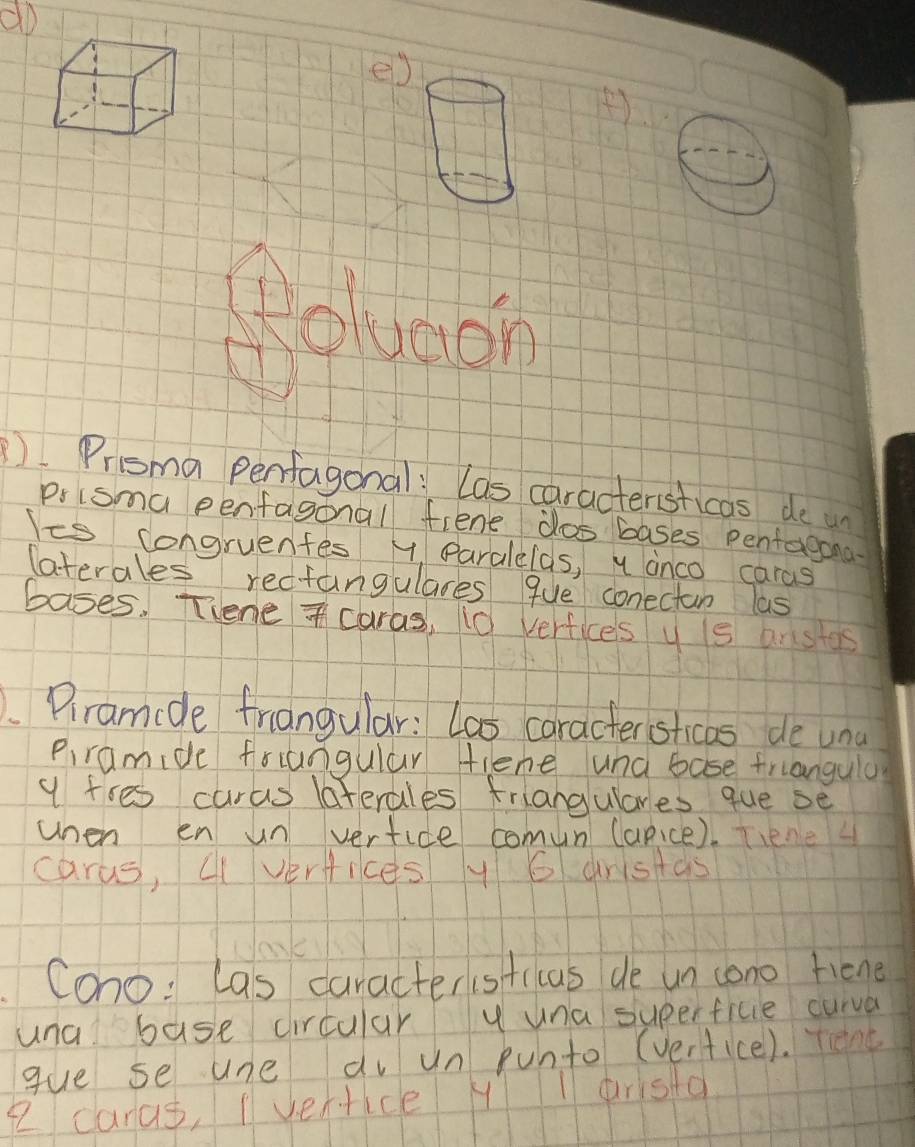 d)
e)
f).
Solución
a). Prisma pentagonal: Las caracteristicas de un
prisma pentagonal tiene dos bases pentagona-
les congruentes y paralelas, y cinco caras
laterales rectangulares que conectan las
bases. Tiene 7 caras, 10 vertices y 15 aristas
). Piramide triangular: Las caracteristicas de una
piramide triangular tiene una base triangular
y tres caras laterales triangulares que se
unen en un vertice comun (apice). Tiene 4
caras, 4 vertices y 6 aristas
. Cono: Las caracteristicas de un cono tiene
una base circular y una superficie curva
que se une a un punto (vertice). Tiene
2 caras, 1 vertice y 1 arista